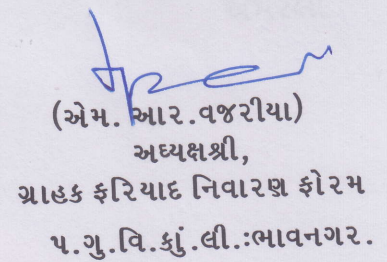 (એમ. આર.વજરીયા)
અઘ્યક્ષશ્રી,
ગ્રાહક ફરિયાદ નિવારણ ફોરમ
પ.ગુ.વિ.કાું.લી.:ભાવનગર.